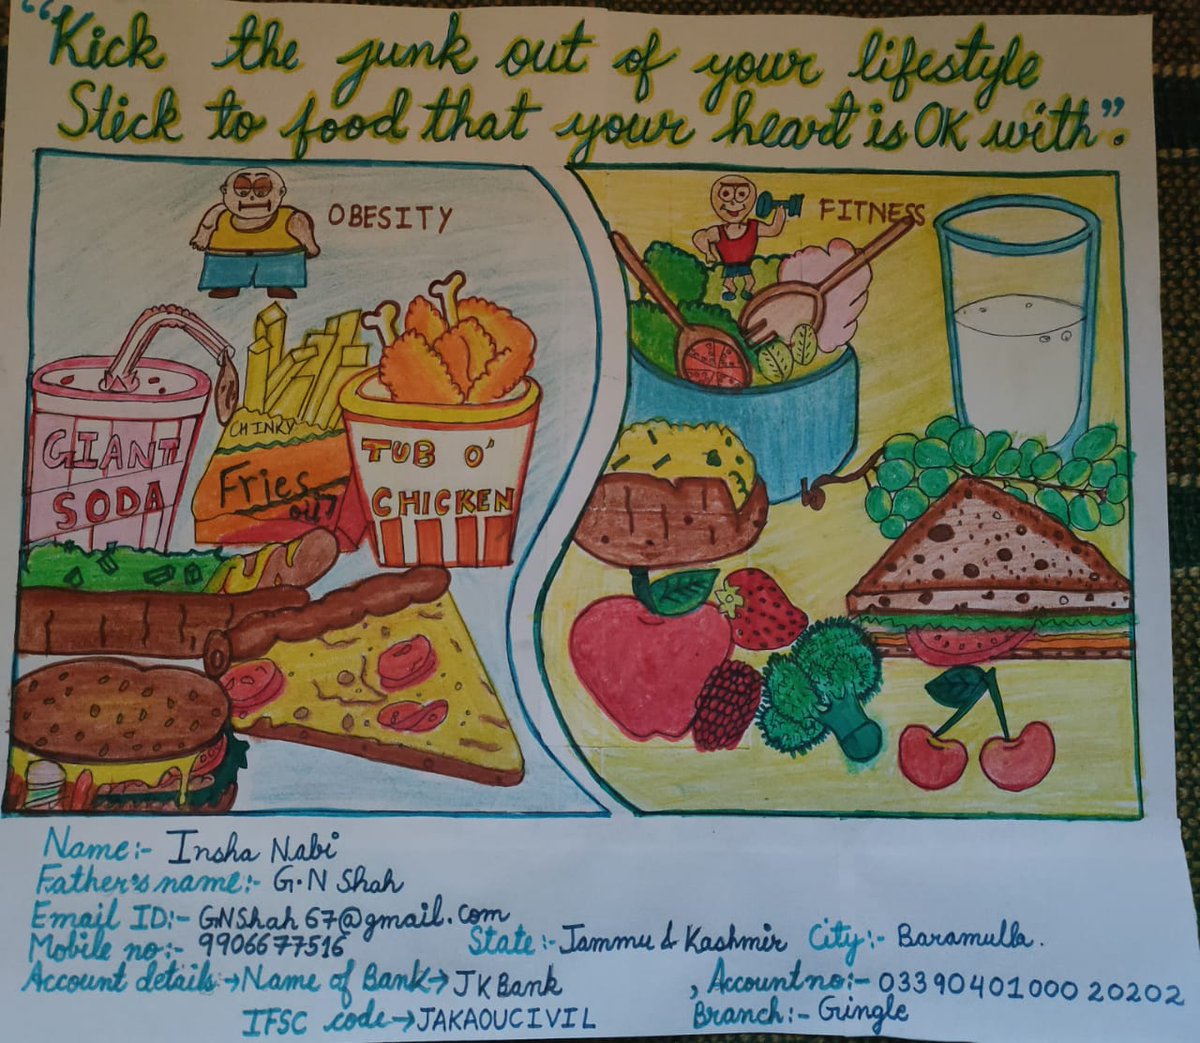 "Kick the junk out of your lifestyle
Stick to food that your heart is OK with".
OBESITY
FITNESS
GIANT
SODA
CHINKY
Fries
TUB O'
CHICKEN
Name:- Insha Nabi
Father's name:- G.N Shah
Email ID:- GNShah67@gmail.com
Mobile no:- 9906677516 State:- Jammu & Kashmir City:- Baramulla.
Account details → Name of Bank → JK Bank , Account no:- 0339040100020202
IFSC code → JAKAOUCIVIL Branch:- Gingle